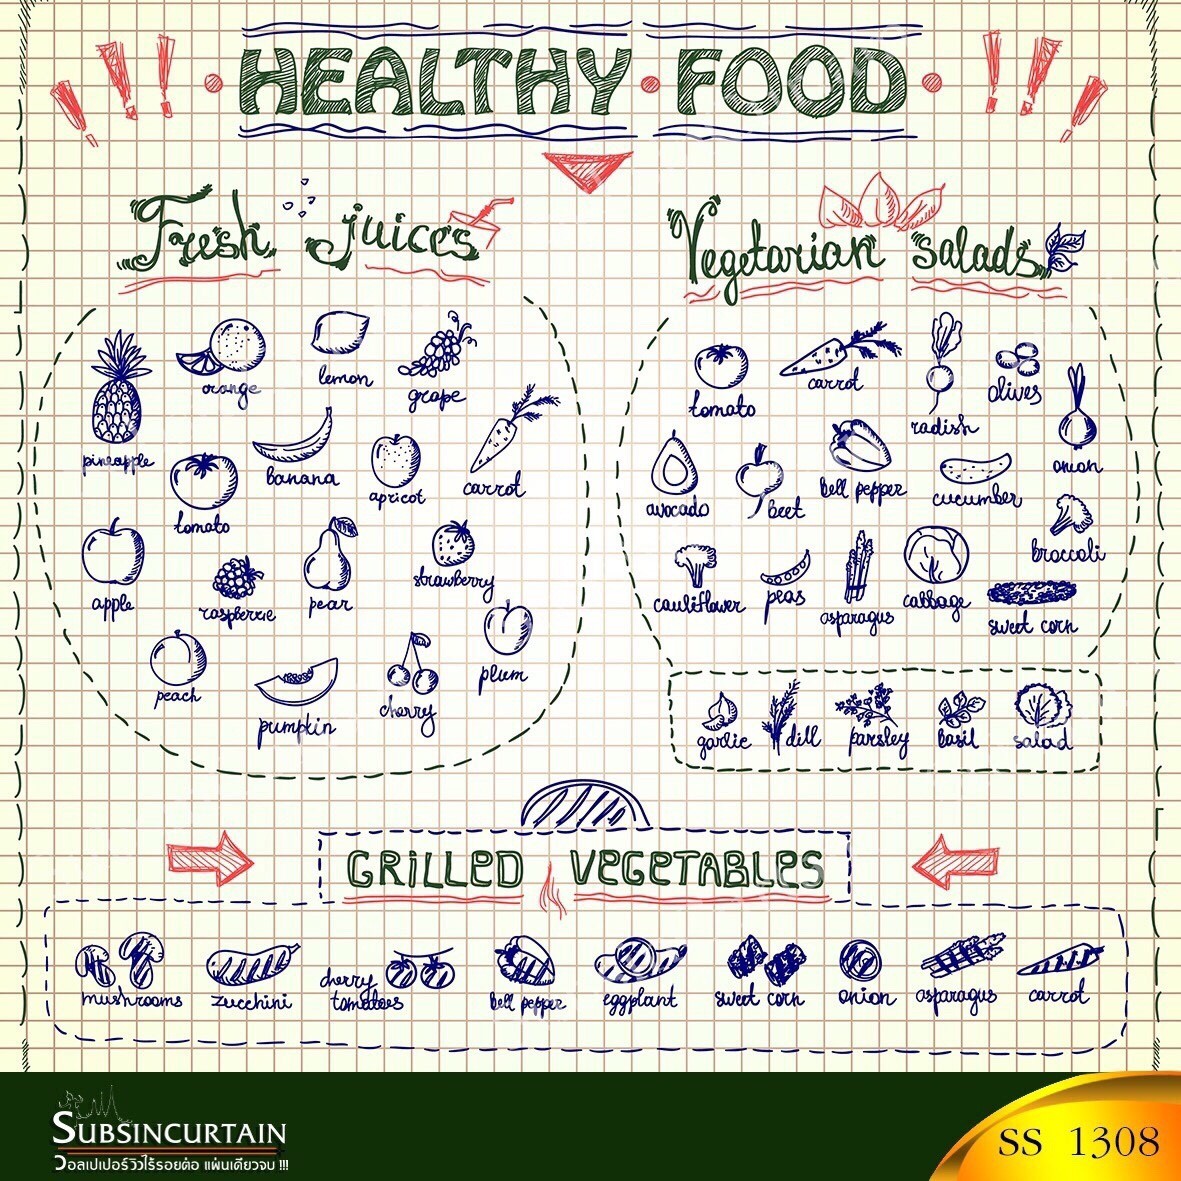 HEALTHY • FOOD
Fresh juices
Vegetarian salads
pineapple
orange
lemon
grape
tomato
banana
apricot
carrot
apple
raspberrie
pear
strawberry
peach
pumpkin
cherry
plum
tomato
carrot
radish
olives
onion
avocado
beet
bell pepper
cucumber
broccoli
cauliflower
peas
asparagus
cabbage
sweet corn
garlic
dill
parsley
basil
salad
GRILLED VEGETABLES
mushrooms
zucchini
cherry
tomatoes
bell pepper
eggplant
sweet corn
onion
asparagus
carrot
SUBSINCURTAIN
วอลเปเปอร์วิวไร้รอยต่อ แผ่นเดียวจบ !!!
SS 1308